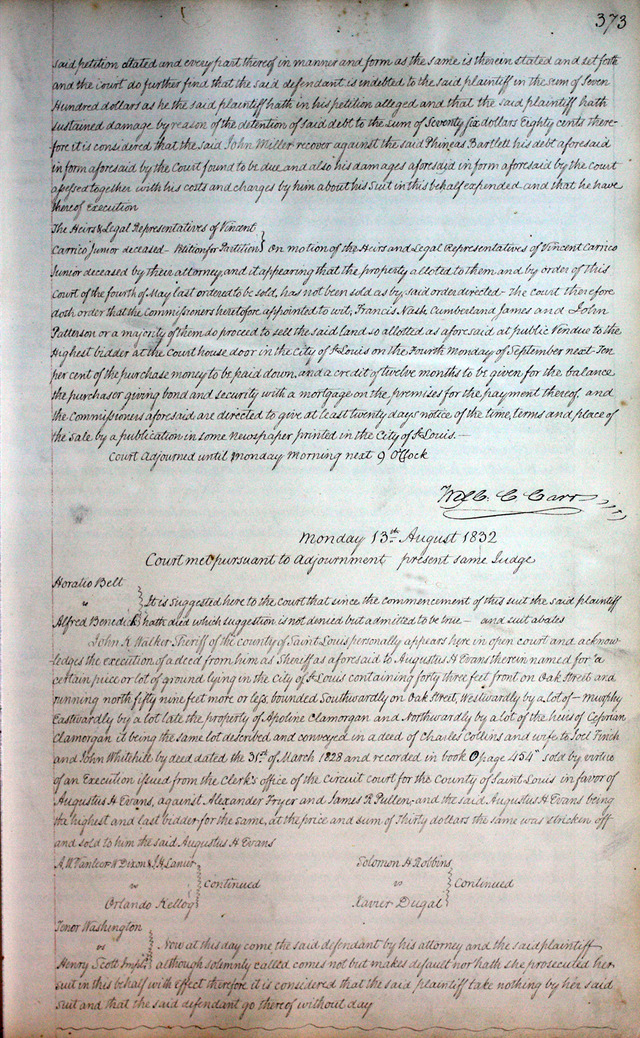 373
said petition stated and every part thereof in manner and form as the same is therein stated and set forth
and the court do further find that the said defendant is indebted to the said plaintiff in the sum of Seven
Hundred dollars as he the said plaintiff hath in his petition alleged and that the said plaintiff hath
sustained damage by reason of the detention of said debt to the sum of Seventy six dollars Eighty cents there-
fore it is considered that the said John Miller recover against the said Phineas Bartlett his debt aforesaid
in form aforesaid by the Court found to be due and also his damages aforesaid in form aforesaid by the Court
assessed together with his costs and charges by him about his Suit in this behalf expended and that he have
thereof Execution
The Heirs & Legal Representatives of Vincent
Carrico Junior deceased - Petition for Partition } On motion of the Heirs and Legal Representatives of Vincent Carrico
Junior deceased by their attorney and it appearing that the property alloted to them and by order of this
Court of the fourth of May last ordered to be sold, has not been sold as by said order directed - The Court therefore
doth order that the Commissioners heretofore appointed to wit; Francis Nash, Cumberland James and John
Patterson or a majority of them do proceed to sell the said land so allotted as aforesaid at public Vendue to the
Highest bidder at the Court house door in the City of St Louis on the Fourth Monday of September next Ten
per cent of the purchase money to be paid down, and a credit of twelve months to be given for the balance
the purchasor giving bond and security with a mortgage on the premises for the payment thereof and
the Commissioners aforesaid are directed to give at least twenty days notice of the time, terms and place of
the sale by a publication in some Newspaper printed in the City of St Louis. -
Court adjourned until Monday Morning next 9 O'Clock
Wm C. Carr
Monday 13th August 1832
Court met pursuant to Adjournment present same Judge
Horatio Belt
vs } It is suggested here to the court that since the commencement of this suit the said plaintiff
Alfred Benedick } hath died which suggestion is not denied but admitted to be true - and suit abates
John K Walker Sheriff of the county of Saint Louis personally appears here in open court and acknow-
ledges the execution of a deed from him as Sheriff as aforesaid to Augustus H Evans therein named for "a
certain piece or lot of ground lying in the City of St Louis containing forty three feet front on Oak Street and
running north fifty nine feet more or less, bounded Southwardly on Oak Street, Westwardly by a lot of - Murphy
Eastwardly by a lot late the property of Apoline Clamorgan and Northwardly by a lot of the heirs of Cyprian
Clamorgan it being the same lot described and conveyed in a deed of Charles Collins and wife to Joel Finch
and John Whitehill by deed dated the 31st of March 1828 and recorded in book O page 454" sold by virtue
of an Execution issued from the Clerk's office of the Circuit court for the County of Saint Louis in favor of
Augustus H Evans, against Alexander Fryer and James R Pullen - and the said Augustus H Evans being
the highest and last bidder for the same, at the price and sum of Thirty dollars the same was stricken off
and sold to him the said Augustus H Evans
A. W Vanleer W Dixon & J. H Lanier
vs } Continued
Orlando Kellog
Solomon H Robbins
vs } Continued
Xavier Dugal
Tenor Washington
vs } Now at this day come the said defendant by his attorney and the said plaintiff
Henry Scott Impld } although solemnly called comes not but makes defaut nor hath she prosecuted her
suit in this behalf with effect therefore it is considered that the said plaintiff take nothing by her said
suit and that the said defendant go thereof without day